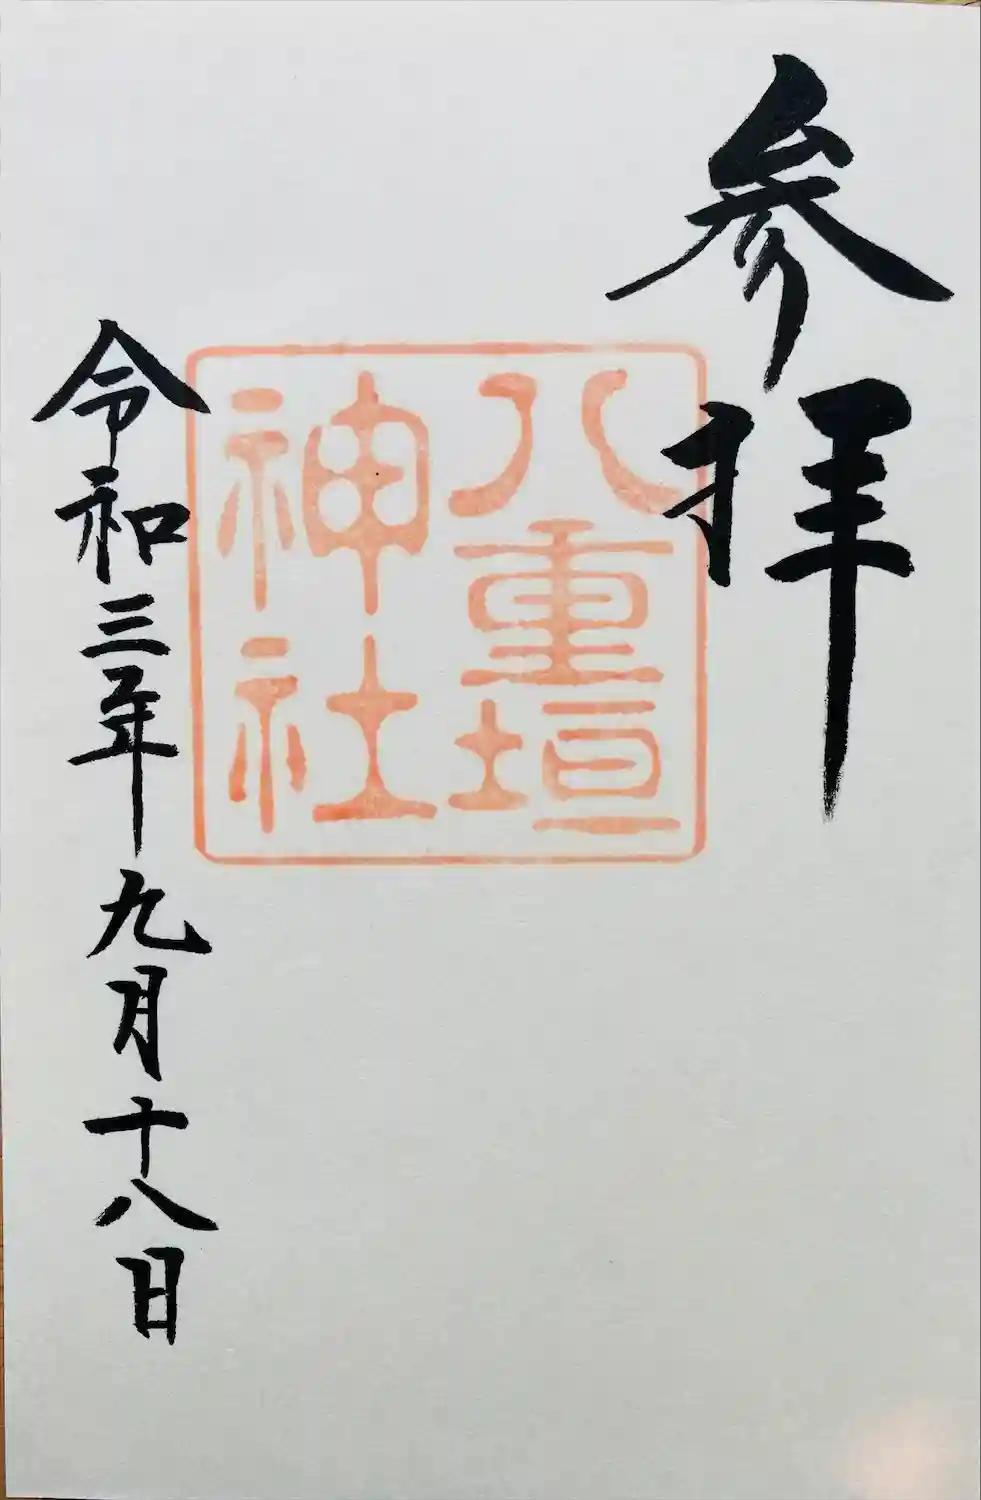 参拝
八重垣
神社
令和三年九月十八日